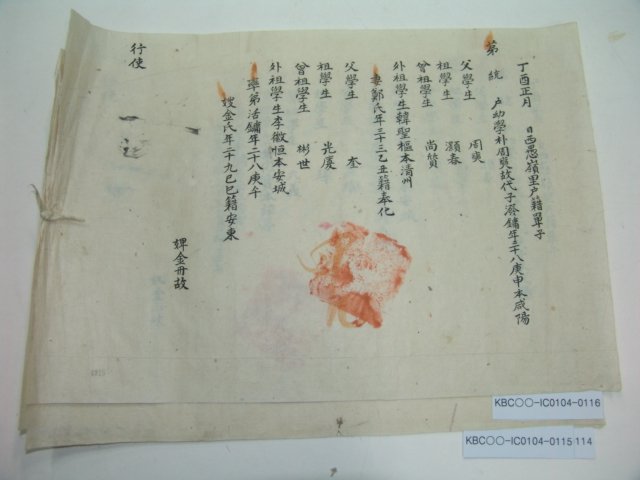 丁酉正月 日西愚嶺里戶籍單子
第 統 戶幼學朴周奭故代子澯鏞年三十八庚申本咸陽
父學生 周奭
祖學生 灝春
曾祖學生 尚贊
外祖學生韓聖樞本清州
妻鄭氏年三十三乙丑籍奉化
父學生 奎
祖學生 光度
曾祖學生 彬世
外祖學生李徽恒本安城
率弟活鏞年二十八庚午
嫂金氏年二十九己巳籍安東
婢金丹故
行使
KBC○○-IC0104-0116
KBC○○-IC0104-0115
114